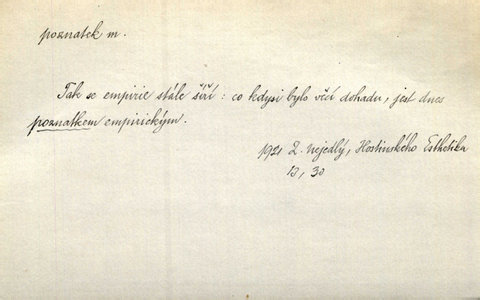 poznatek m.
Tak se empirie stále šíří: co kdysi bylo věcí dohadu, jest dnes
poznatkem empirickým.
1921 Z. Nejedlý, Hostinského Esthetika
13, 30